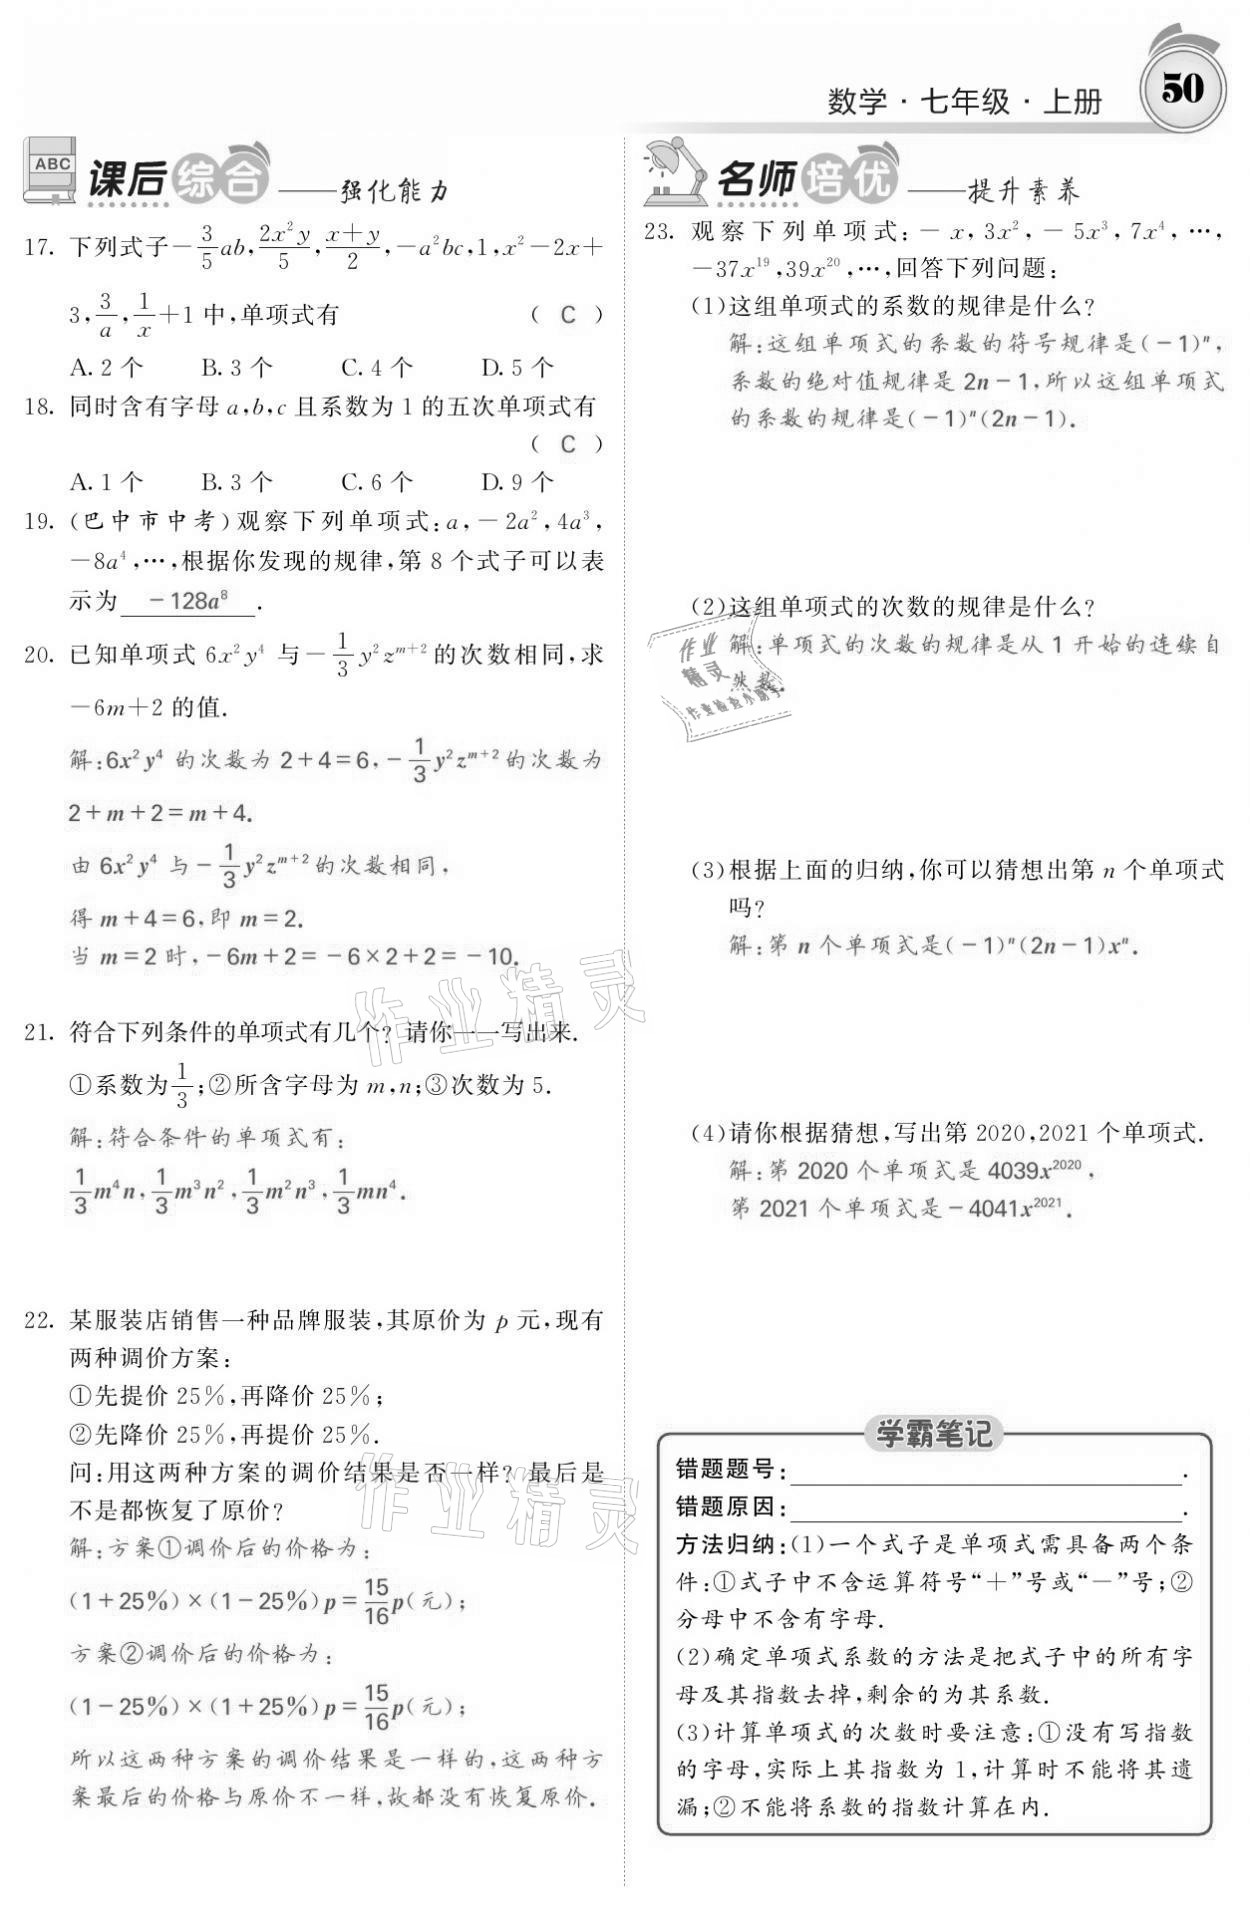 数学·七年级·上册 50
ABC 课后综合——强化能力
17. 下列式子-3/5ab,2x²y/5,(x+y)/2,-a²bc,1,x²-2x+
3,3/a,1/x+1中,单项式有 ( C )
A. 2个 B. 3个 C. 4个 D. 5个
18. 同时含有字母a,b,c且系数为1的五次单项式有
( C )
A. 1个 B. 3个 C. 6个 D. 9个
19. (巴中市中考)观察下列单项式:a,-2a²,4a³,
-8a⁴,…,根据你发现的规律,第8个式子可以表
示为 -128a⁸ .
20. 已知单项式6x²y⁴与-1/3y²z^(m+2)的次数相同,求
-6m+2的值.
解:6x²y⁴的次数为2+4=6,-1/3y²z^(m+2)的次数为
2+m+2=m+4.
由6x²y⁴与-1/3y²z^(m+2)的次数相同,
得m+4=6,即m=2.
当m=2时,-6m+2=-6×2+2=-10.
21. 符合下列条件的单项式有几个?请你一一写出来.
①系数为1/3;②所含字母为m,n;③次数为5.
解:符合条件的单项式有:
1/3m⁴n,1/3m³n²,1/3m²n³,1/3mn⁴.
22. 某服装店销售一种品牌服装,其原价为p元,现有
两种调价方案:
①先提价25%,再降价25%;
②先降价25%,再提价25%.
问:用这两种方案的调价结果是否一样?最后是
不是都恢复了原价?
解:方案①调价后的价格为:
(1+25%)×(1-25%)p=15/16p(元);
方案②调价后的价格为:
(1-25%)×(1+25%)p=15/16p(元);
所以这两种方案的调价结果是一样的,这两种方
案最后的价格与原价不一样,故都没有恢复原价.
名师培优——提升素养
23. 观察下列单项式:-x,3x²,-5x³,7x⁴,…,
-37x¹⁹,39x²⁰,…,回答下列问题:
(1)这组单项式的系数的规律是什么?
解:这组单项式的系数的符号规律是(-1)ⁿ,
系数的绝对值规律是2n-1,所以这组单项式
的系数的规律是(-1)ⁿ(2n-1).
(2)这组单项式的次数的规律是什么?
解:单项式的次数的规律是从1开始的连续自
然数.
作业
精灵
作业检查小助手
(3)根据上面的归纳,你可以猜想出第n个单项式
吗?
解:第n个单项式是(-1)ⁿ(2n-1)xⁿ.
(4)请你根据猜想,写出第2020,2021个单项式.
解:第2020个单项式是4039x²⁰²⁰,
第2021个单项式是-4041x²⁰²¹.
学霸笔记
错题题号:.
错题原因:.
方法归纳:(1)一个式子是单项式需具备两个条
件:①式子中不含运算符号“+”号或“-”号;②
分母中不含有字母.
(2)确定单项式系数的方法是把式子中的所有字
母及其指数去掉,剩余的为其系数.
(3)计算单项式的次数时要注意:①没有写指数
的字母,实际上其指数为1,计算时不能将其遗
漏;②不能将系数的指数计算在内.
作业精灵
作业精灵